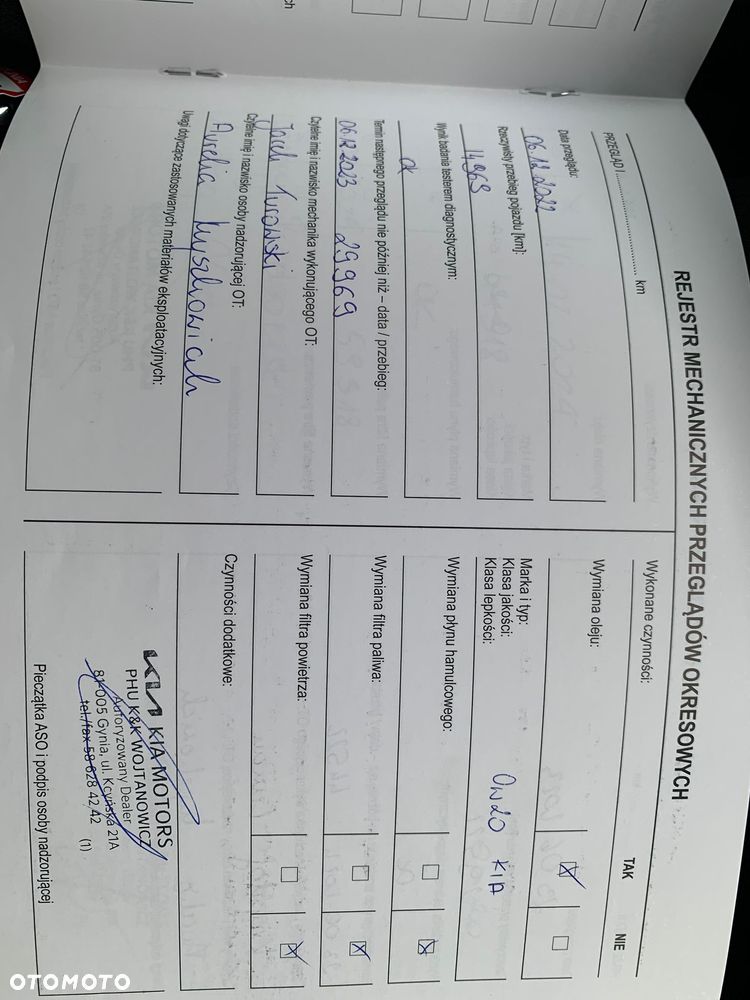 REJESTR MECHANICZNYCH PRZEGLĄDÓW OKRESOWYCH
PRZEGLĄD I .......................... km
Data przeglądu:
06.12.2022
Rzeczywisty przebieg pojazdu [km]:
14.969
Wynik badania testerem diagnostycznym:
ok
Termin następnego przeglądu nie później niż – data / przebieg:
06.12.2023 29969
Czytelne imię i nazwisko mechanika wykonującego OT:
Jacek Turowski
Czytelne imię i nazwisko osoby nadzorującej OT:
Aurelia
Uwagi dotyczące zastosowanych materiałów eksploatacyjnych:
Wykonane czynności: TAK NIE
Wymiana oleju:
Marka i typ:
Klasa jakości:
Klasa lepkości:
0W20 KIA
Wymiana płynu hamulcowego:
Wymiana filtra paliwa:
Wymiana filtra powietrza:
Czynności dodatkowe:
KIA KIA MOTORS
PHU K&K WOJTANOWICZ
Autoryzowany Dealer
81-005 Gynia, ul. Kcyńska 21A
tel./fax 58 628 42 42 (1)
Pieczątka ASO i podpis osoby nadzorującej
OTOMOTO